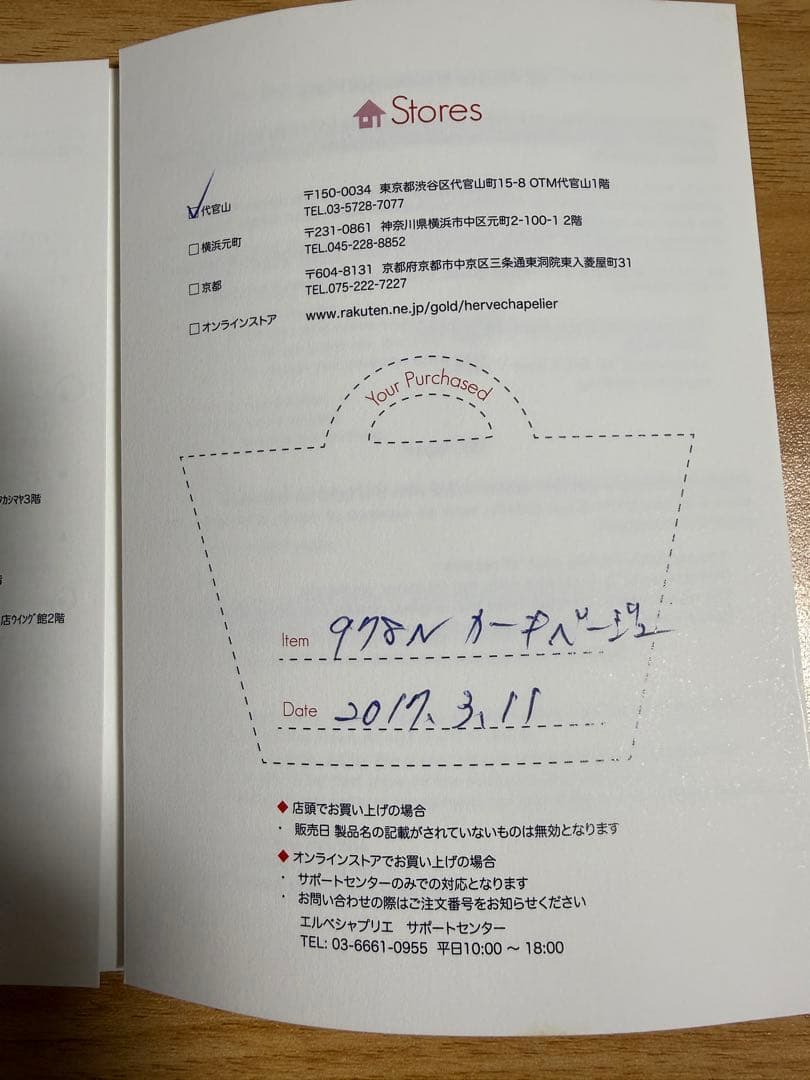 Stores
代官山
〒150-0034 東京都渋谷区代官山町15-8 OTM代官山1階
TEL.03-5728-7077
横浜元町
〒231-0861 神奈川県横浜市中区元町2-100-1 2階
TEL.045-228-8852
京都
〒604-8131 京都府京都市中京区三条通東洞院東入菱屋町31
TEL.075-222-7227
オンラインストア
www.rakuten.ne.jp/gold/hervechapelier
Your Purchased
カシマヤ3階
店ウイング館2階
Item 978N カーキベージュ
Date 2017.3.11
◆ 店頭でお買い上げの場合
・ 販売日 製品名の記載がされていないものは無効となります
◆ オンラインストアでお買い上げの場合
・ サポートセンターのみでの対応となります
・ お問い合わせの際はご注文番号をお知らせください
エルベシャプリエ サポートセンター
TEL: 03-6661-0955 平日10:00 ～ 18:00